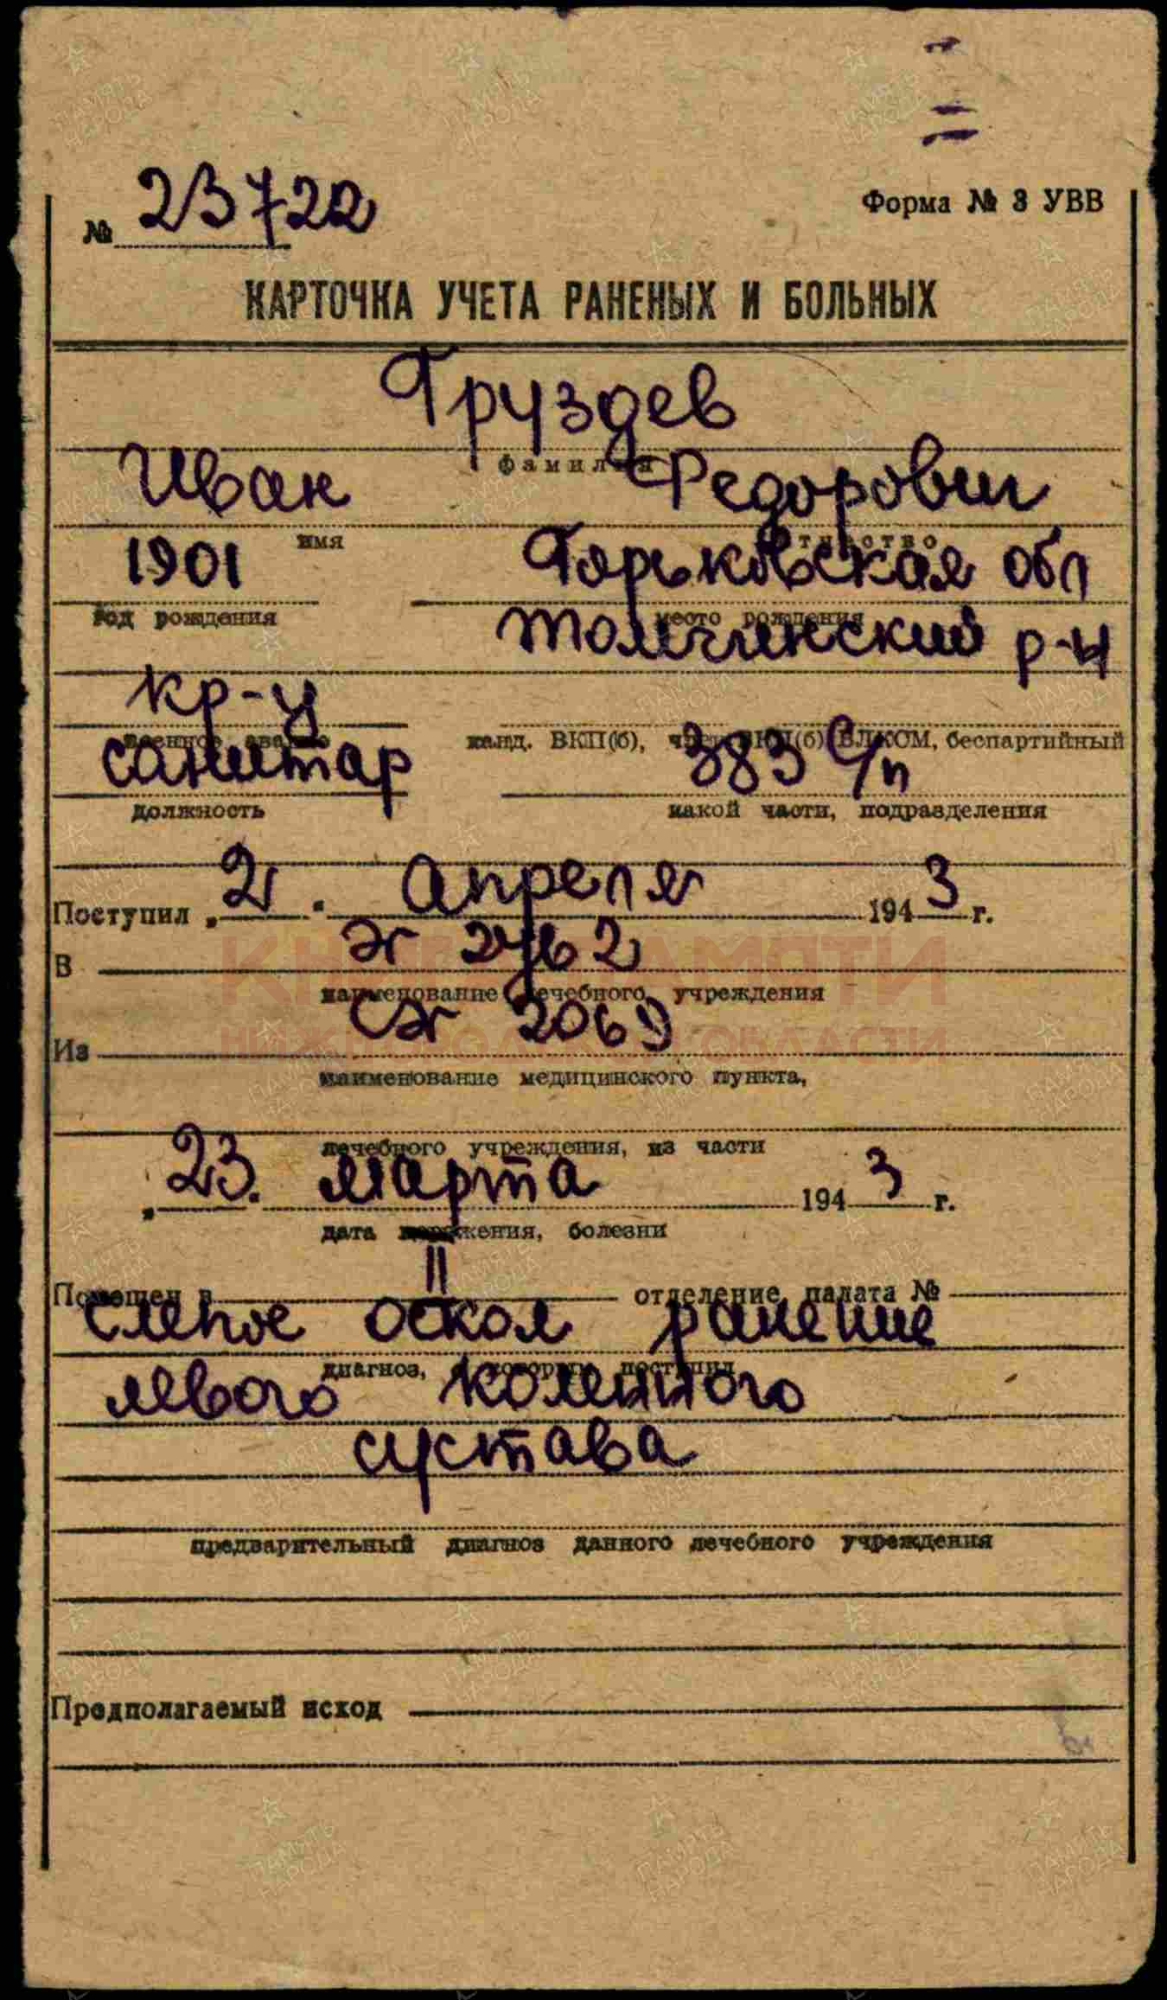 Форма № 3 УВВ
№ 23722
КАРТОЧКА УЧЕТА РАНЕНЫХ И БОЛЬНЫХ
Груздев
фамилия
Иван Федорович
имя отчество
1901 Горьковская обл
год рождения место рождения
р-н
кр-ц
военное звание канд. ВКП(б), член ВКП(б) ВЛКСМ, беспартийный
санитар 383 с/п
должность какой части, подразделения
Поступил „2“ Апреля 1943 г.
В ЭГ 2762
наименование лечебного учреждения
Из ЭГ 2069
наименование медицинского пункта,
лечебного учреждения, из части
„23. марта 1943 г.
дата поражения, болезни
Помещен в отделение, палата №
слепое оскол ранение
диагноз, с которым поступил
левого коленного
сустава
предварительный диагноз данного лечебного учреждения
Предполагаемый исход
КНИГА ПАМЯТИ
НИЖЕГОРОДСКОЙ ОБЛАСТИ
ПАМЯТЬ НАРОДА